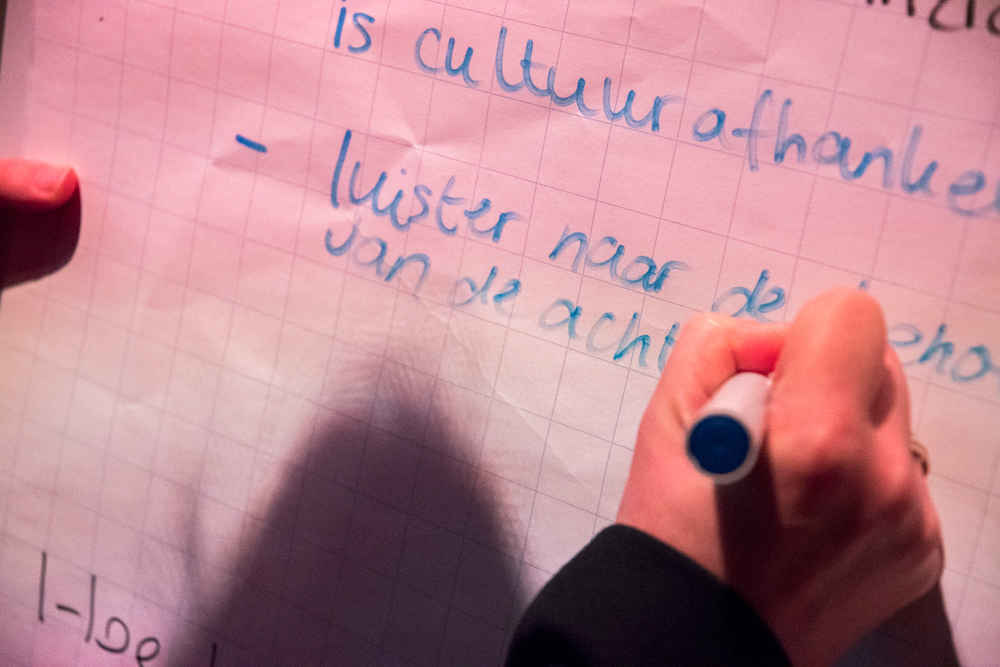 is cultuur afhanke
- luister naar de eho
van de acht
Hoe